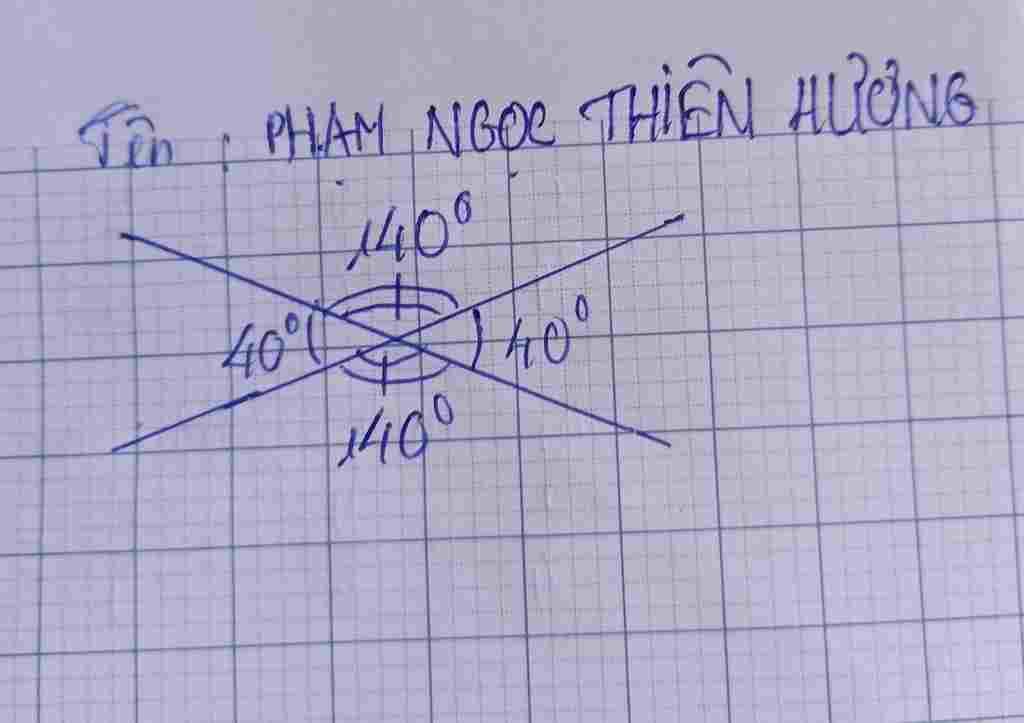 Tên : PHẠM NGỌC THIÊN HƯƠNG
140⁰
40⁰ 40⁰
140⁰